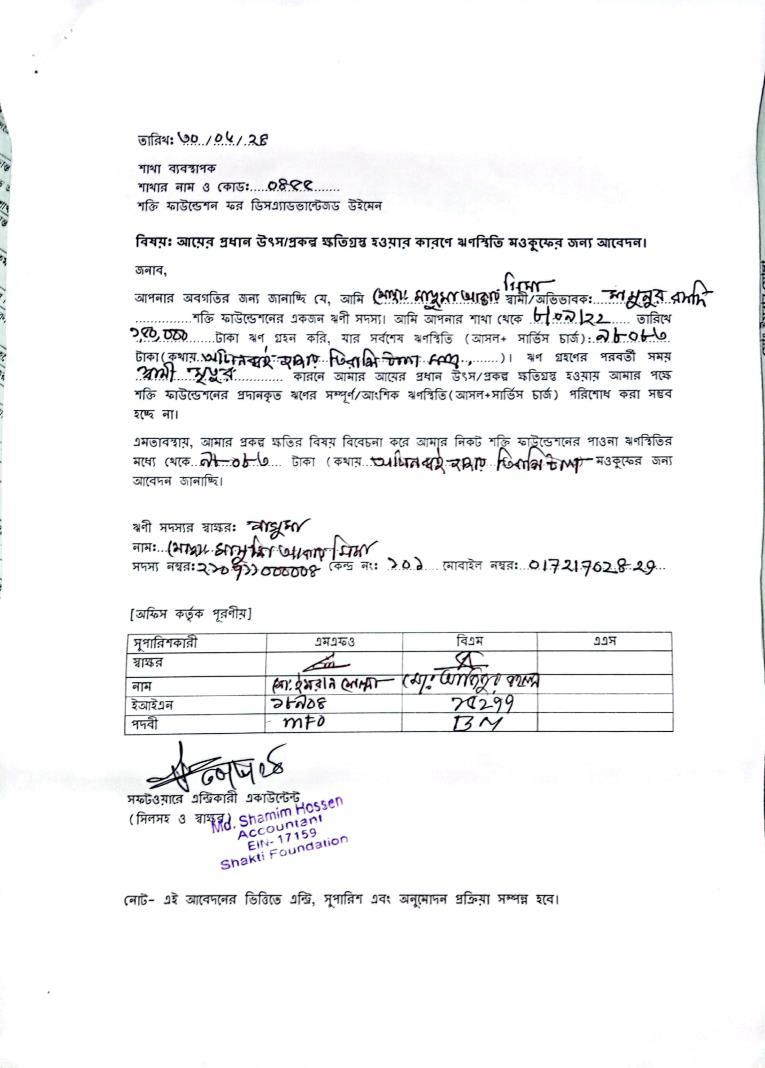 তারিখ: ৩০/০৫/২৪
শাখা ব্যবস্থাপক
শাখার নাম ও কোড:.....০৪৪৪........
শক্তি ফাউন্ডেশন ফর ডিসএ্যাডভান্টেজড উইমেন
বিষয়: আয়ের প্রধান উৎস/প্রকল্প ক্ষতিগ্রস্ত হওয়ার কারণে ঋণস্থিতি মওকুফের জন্য আবেদন।
জনাব,
আপনার অবগতির জন্য জানাচ্ছি যে, আমি স্বামী/অভিভাবক:
শক্তি ফাউন্ডেশনের একজন ঋণী সদস্য। আমি আপনার শাখা থেকে ৮/০৯/২২ তারিখে
টাকা ঋণ গ্রহন করি, যার সর্বশেষ ঋণস্থিতি (আসল+ সার্ভিস চার্জ):
টাকা(কথায় )। ঋণ গ্রহণের পরবর্তী সময়
স্বামী মৃত্যুর কারনে আমার আয়ের প্রধান উৎস/প্রকল্প ক্ষতিগ্রস্ত হওয়ায় আমার পক্ষে
শক্তি ফাউন্ডেশনের প্রদানকৃত ঋণের সম্পূর্ণ/আংশিক ঋণস্থিতি(আসল+সার্ভিস চার্জ) পরিশোধ করা সম্ভব
হচ্ছে না।
এমতাবস্থায়, আমার প্রকল্প ক্ষতির বিষয় বিবেচনা করে আমার নিকট শক্তি ফাউন্ডেশনের পাওনা ঋণস্থিতির
মধ্যে থেকে টাকা (কথায় মওকুফের জন্য
আবেদন জানাচ্ছি।
ঋণী সদস্যর স্বাক্ষর:
নাম:
সদস্য নম্বর: কেন্দ্র নং: ১০১ মোবাইল নম্বর: 01721702829
[অফিস কর্তৃক পূরণীয়]
সুপারিশকারী এমএফও বিএম এএস
স্বাক্ষর
নাম মো: ইমরান মো:
ইআইএন
পদবী MFO BM
সফটওয়ারে এন্ট্রিকারী একাউন্টেন্ট
(সিলসহ ও স্বাক্ষর)
Md. Shamim Hossen
Accountant
EIN-17159
Shakti Foundation
নোট- এই আবেদনের ভিত্তিতে এন্ট্রি, সুপারিশ এবং অনুমোদন প্রক্রিয়া সম্পন্ন হবে।